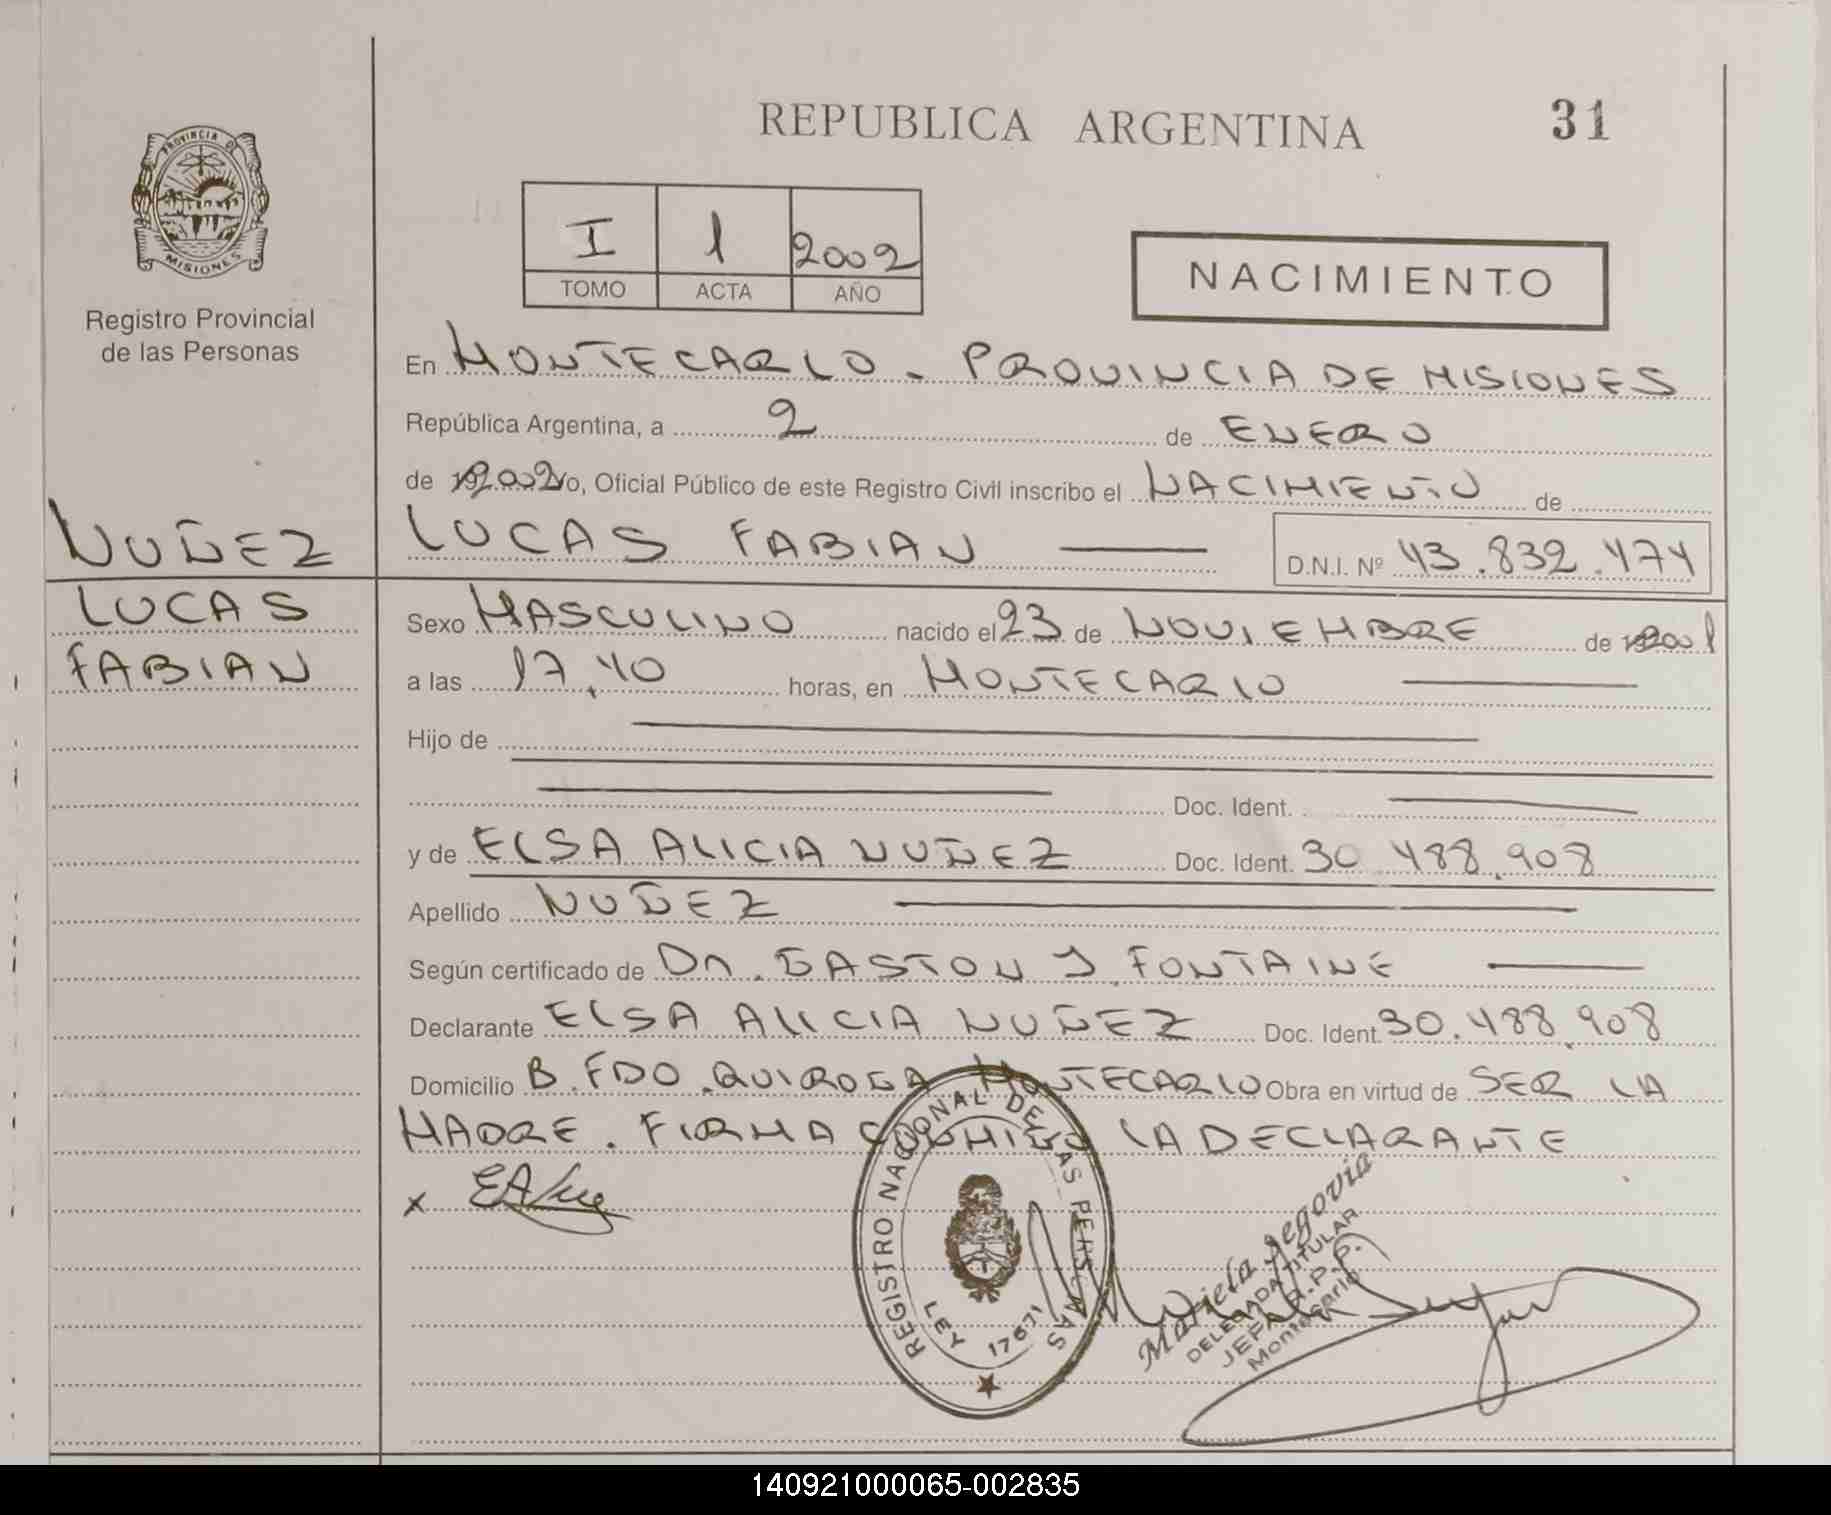 REPUBLICA ARGENTINA
31
PROVINCIA DE
MISIONES
Registro Provincial
de las Personas
I 1 2002
TOMO ACTA AÑO
NACIMIENTO
En MONTECARLO - PROVINCIA DE MISIONES
República Argentina, a 2 de ENERO
de 2002 Yo, Oficial Público de este Registro Civil inscribo el NACIMIENTO de
LUCAS FABIAN D.N.I. Nº 43.832.474
NUÑEZ
LUCAS
FABIAN
Sexo MASCULINO nacido el 23 de NOVIEMBRE de 2001
a las 17,40 horas, en MONTECARLO
Hijo de
Doc. Ident.
y de ELSA ALICIA NUÑEZ Doc. Ident. 30.488.908
Apellido NUÑEZ
Según certificado de Dr. GASTON J FONTAINE
Declarante ELSA ALICIA NUÑEZ Doc. Ident. 30.488.908
Domicilio B. FDO. QUIROGA MONTECARLO Obra en virtud de SER LA
MADRE. FIRMA CONMIGO LA DECLARANTE
x
REGISTRO NACIONAL DE LAS PERSONAS
LEY 17671
Mariela Segovia
DELEGADA TITULAR
JEFA R.P.P.
Montecarlo
140921000065-002835